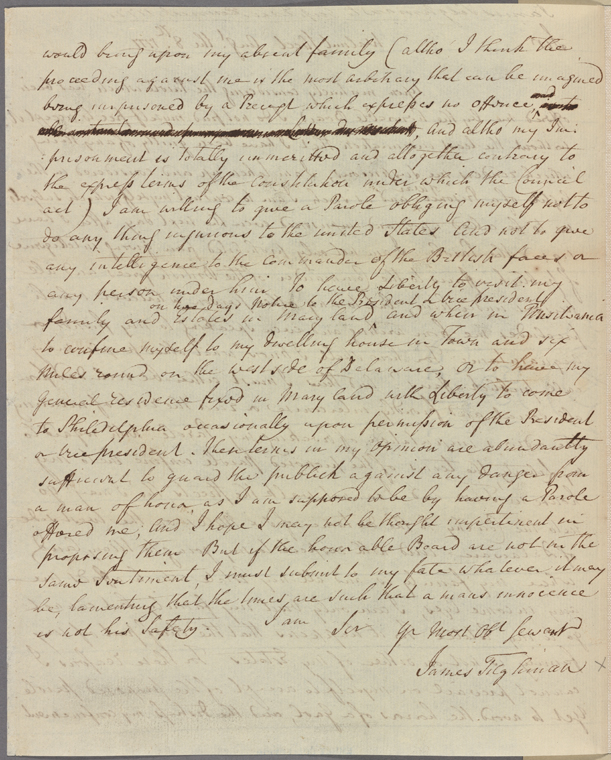 would bring upon my absent family (altho' I think the
proceeding against me is the most arbitrary that can be imagined
being imprisoned by a Precept which expresses no offence, and
, and altho my Im:
:prisonment is totally unmerited and altogether contrary to
the express terms of the Constitution under which the Council
act) I am willing to give a Parole obliging myself not to
do any thing injurious to the united States And not to give
any intelligence to the Commander of the British forces or
any person under him To have Liberty to visit my
on two Days Notice to the President or vice president
family and Estates in Mary land and when in Pensilvania
to confine myself to my dwelling house in Town and six
Miles round on the west side of Delaware, or to have my
general residence fixed in Mary land with Liberty to come
to Philidelphia occasionally upon permission of the President
or vice president. These terms in my opinion are abundantly
sufficient to guard the publick against any danger from
a man of honor, as I am supposed to be by having a Parole
offered me, And I hope I may not be thought impertinent in
proposing them But if the honorable Board are not in the
same Sentiment, I must submit to my fate whatever it may
be, lamenting that the times are such that a mans innocence
is not his Safety. I am Sir Yr Most Obt Servant
James Tilghman